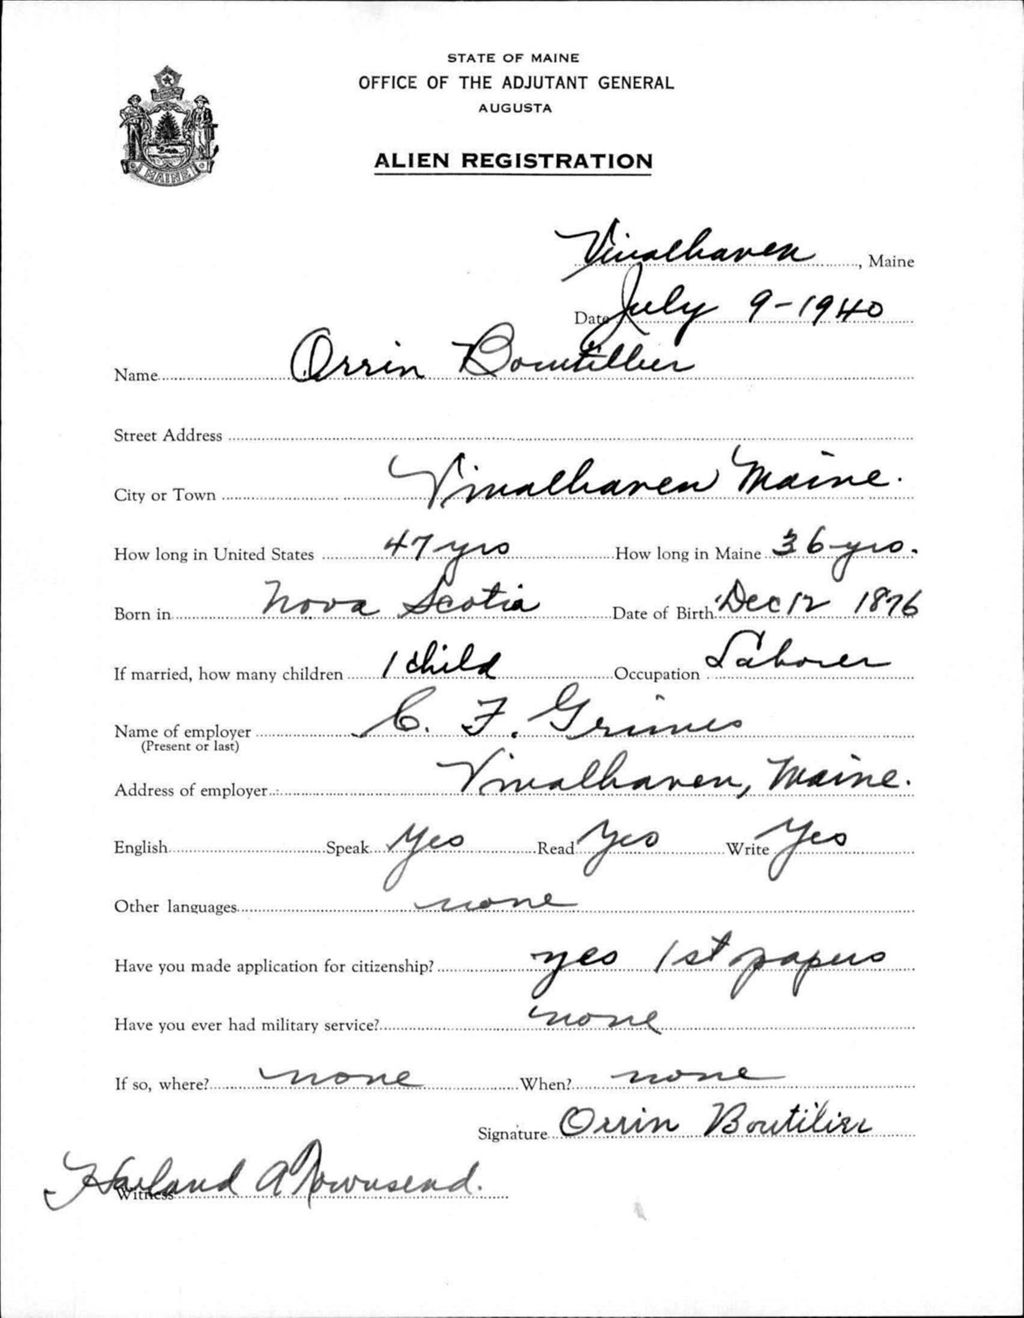 STATE OF MAINE
OFFICE OF THE ADJUTANT GENERAL
AUGUSTA
MAINE
ALIEN REGISTRATION
Vinalhaven, Maine
Date July 9-1940
Name Orrin Boutillier
Street Address
City or Town Vinalhaven Maine.
How long in United States 47 yrs How long in Maine 36 yrs.
Born in Nova Scotia Date of Birth Dec 12 1876
If married, how many children 1 child Occupation Laborer
Name of employer C. F. Grimes
(Present or last)
Address of employer Vinalhaven, Maine.
English Speak Yes Read Yes Write Yes
Other languages none
Have you made application for citizenship? yes 1st papers
Have you ever had military service? none
If so, where? none When? none
Signature Orrin Boutilier
Witness Harland A Townsend.